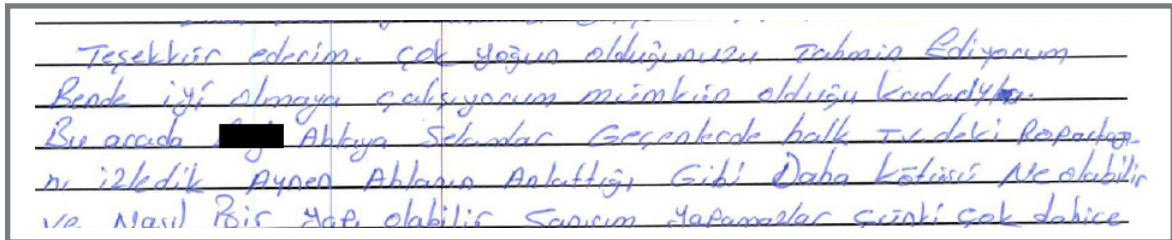 Teşekkür ederim. Çok yoğun olduğunuzu Tahmin Ediyorum
Bende iyi olmaya çalışıyorum mümkün olduğu kadarıyla.
Bu arada Ablaya Selamlar Geçenlerde halk TV.deki Roportajı-
nı izledik Aynen Ablanın Anlattığı Gibi Daha kötüsü Ne olabilir
ve Nasıl Bir Yapı olabilir Sanırım Yapamazlar çünki çok dahice